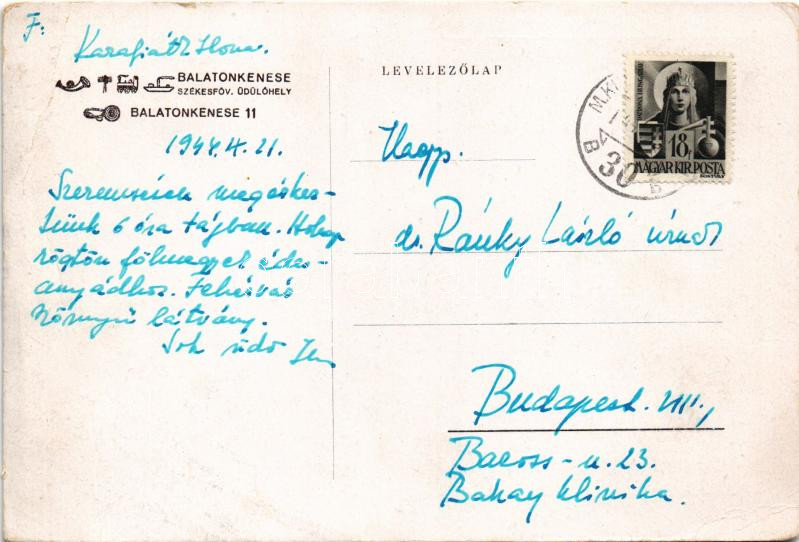 F:
Karafiáth Ilona.
BALATONKENESE
SZÉKESFŐV. ÜDÜLŐHELY
BALATONKENESE 11
1944.4.21.
Szerencsésen megérkez-
tünk 6 óra tájban. Holnap
rögtön fölmegyek édes-
anyádhoz. Fehérvár
szörnyű látvány.
Sok üdv
LEVELEZŐLAP
Nagys.
dr. Ránky László úrnak
Budapest. VIII.,
Baross-u. 23.
Bakay klinika.
PATRONA HUNGARIAE
18f
MAGYAR KIR. POSTA
M.KIR.
4
B 30 B